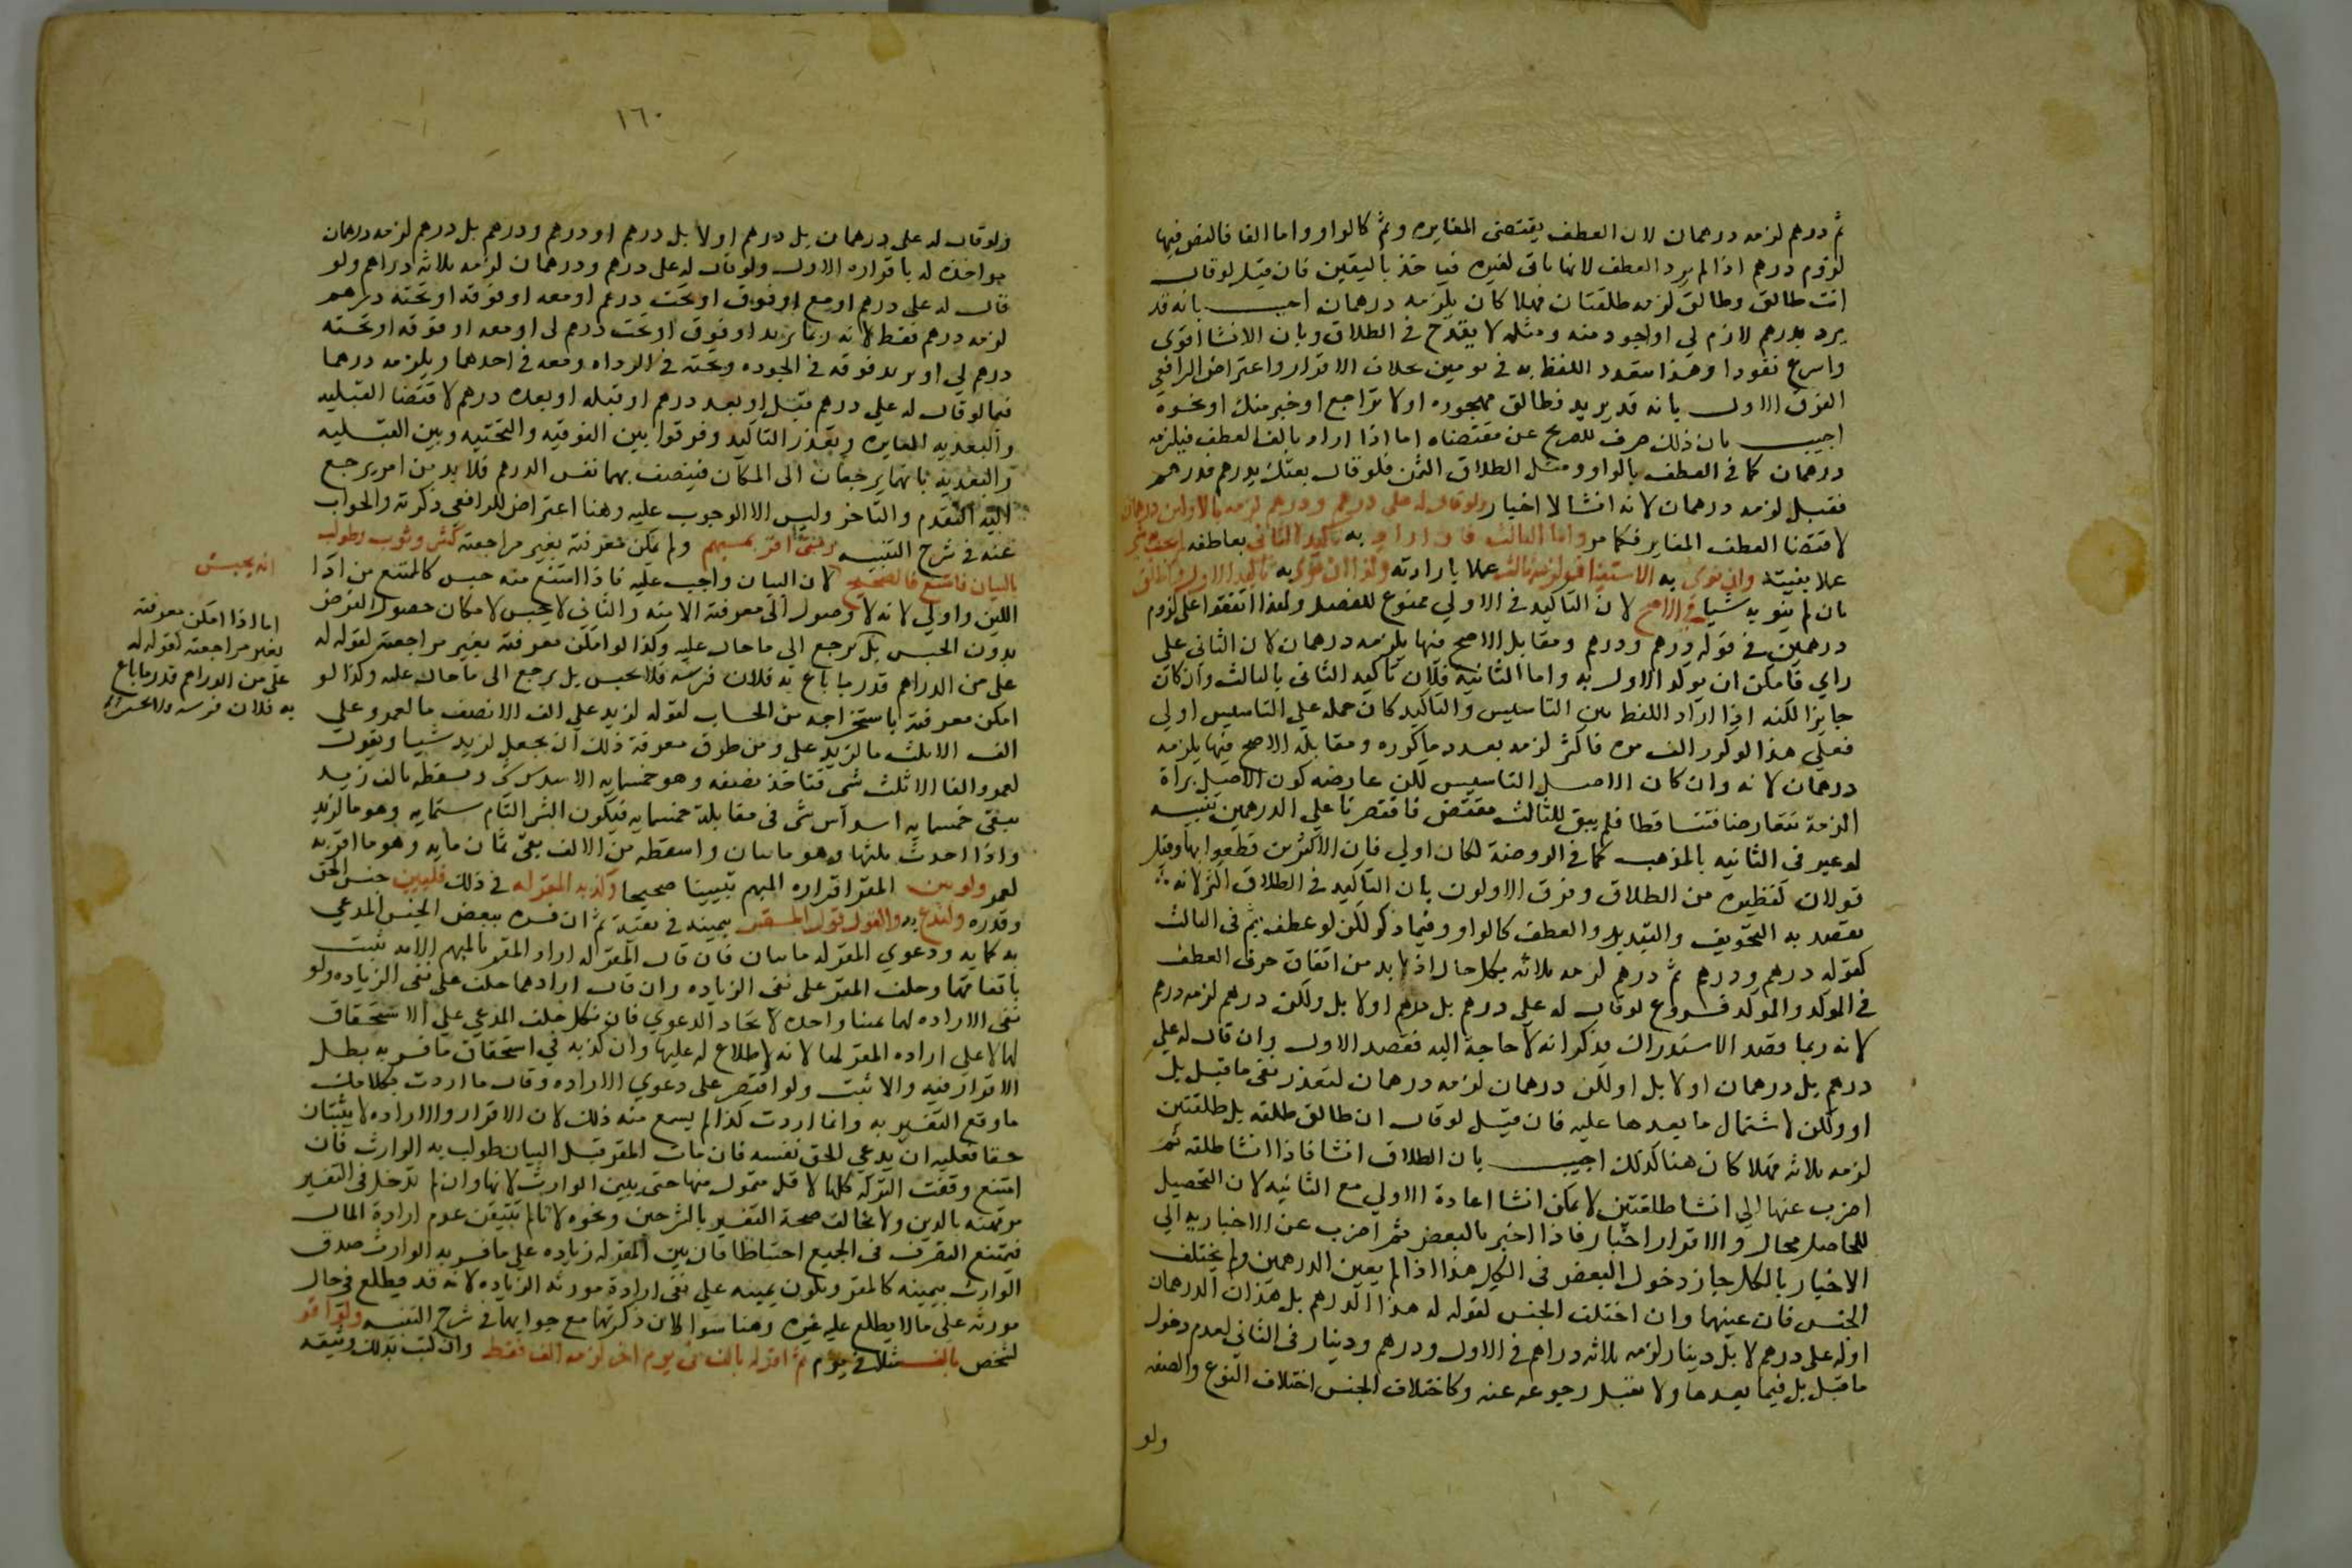 ثم درهم لزمه درهمان لان العطف يقتضى المغايره وثم كالواو واما الفا فالنص فيها
لزوم درهم اذا لم يرد العطف لانها تاتى لغيره فيوخذ باليقين فان قيل لو قال
انت طالق وطالق لزمه طلقتان فهلا كان يلزمه درهمان اجيب بانه قد
يريد فدرهم لازم لي او اجود منه ومثله لا ينقدح في الطلاق وبان الانشا اقوى
واسرع نفوذا ولهذا يتعدد اللفظ به في يومين بخلاف الاقرار واعترض الرافعي
الفرق الاول بانه قد يريد فطالق مهجوره او لا تراجع او خير منك او نحوه
اجيب بان ذلك صرف للصريح عن مقتضاه اما اذا اراد بالفا العطف فيلزمه
درهمان كما في العطف بالواو ومثل الطلاق الثمن فلو قال بعتك بدرهم فدرهم
فقبل لزمه درهمان لانه انشا لا اخبار ولو قال له على درهم ودرهم ودرهم لزمه بالاولين درهمان
لاقتضا العطف المغاير فكما مر واما الثالث فان اراد به تاكيد الثانى بعاطفه لم يجب به شى
عملا بنيته وان نوى به الاستيناف لزمه ثالث عملا بارادته وكذا ان نوى به تاكيد الاول او اطلق
بان لم ينو به شيا في الاصح لان التاكيد في الاولي ممنوع للفصل ولهذا اتفقوا على لزوم
درهمين في قوله درهم ودرهم ومقابل الاصح فيها يلزمه درهمان لان الثانى على
راي فامكن ان يوكد الاول به واما الثانية فلان تاكيد الثانى بالثالث وان كان
جايزا لكنه اذا اراد اللفظ بين التاسيس والتاكيد كان حمله علي التاسيس اولي
فعلي هذا لو كرر الف مره فاكثر لزمه بعدد ما كرره ومقابله الاصح فيها يلزمه
درهمان لانه وان كان الاصل التاسيس لكن عارضه كون الاصل براة
الزمة فتعارضا فتساقطا فلم يبق للثالث مقتض فاقتصرنا علي الدرهمين تنبيه
لو عبر فى الثانيه بالمذهب كما في الروضة لكان اولي فان الاكثرين قطعوا بها وقيل
قولان كنظيره من الطلاق وفرق الاولون بان التاكيد في الطلاق اكثر لانه
يقصد به التخويف والتهديد والعطف كالواو وفيما ذكر لكن لو عطف بثم فى الثالث
كقوله درهم ودرهم ثم درهم لزمه ثلاثه بكل حال اذ لا بد من اتفاق حرف العطف
في الموكد والموكد فروع لو قال له علي درهم بل درهم او لا بل ولكن درهم لزمه درهم
لانه ربما قصد الاستدراك فذكر انه لا حاجة اليه فقصد الاول وان قال له علي
درهم بل درهمان او لا بل او لكن درهمان لزمه درهمان لتعذر نفى ما قبل بل
او ولكن لاشتمال ما بعدها عليه فان قيل لو قال انت طالق طلقه بل طلقتين
لزمه ثلاثه فهلا كان هنا كذلك اجيب بان الطلاق انشا فاذا انشا طلقه ثم
اضرب عنها الي انشا طلقتين لا يمكن انشا اعادة الاولي مع الثانيه لان التحصيل
للحاصل محال والاقرار اخبار فاذا اخبر بالبعض ثم اضرب عن الاخبار به الي
الاخبار بالكل جاز دخول البعض في الكل هذا اذا لم يعين الدرهمين ولم يختلف
الجنس فان عينهما وان اختلف الجنس لقوله له هذا الدرهم بل هذان الدرهمان
او له علي درهم لا بل دينار لزمه ثلاثه دراهم في الاول ودرهم ودينار في الثانى لعدم دخول
ما قبل بل فيما بعدها ولا يقبل رجوعه عنه وكاختلاف الجنس اختلاف النوع والصفه
ولو
١٦٠
ولو قال له على درهمان بل درهم او لا بل درهم او درهم ودرهم بل درهم لزمه درهمان
مواخذة له باقراره الاول ولو قال له على درهم ودرهمان لزمه ثلاثة دراهم ولو
قال له على درهم او مع او فوق او تحت درهم او معه او فوقه او تحته درهم
لزمه درهم فقط لانه ربما يريد او فوق او تحت درهم لى او معه او فوقه او تحته
درهم لي او يريد فوقه في الجوده وتحته في الرداه ومعه في احدهما ويلزمه درهما
فيما لو قال له علي درهم قبل او بعد درهم او قبله او بعده درهم لاقتضا القبليه
والبعديه المغايره وتعذر التاكيد وفرقوا بين الفوقيه والتحتيه وبين القبليه
والبعديه بانهما يرجعان الى المكان فيتصف بهما نفس الدرهم فلا بد من امر يرجع
اليه التقدم والتاخر وليس الا الوجوب عليه وهنا اعتراض للرافعى ذكرته والجواب
عنه في شرح التنبيه ومتى اقر بمبهم ولم يمكن معرفته بغير مراجعته كشى وثوب وطولب
بالبيان فامتنع فالصحيح لان البيان واجب عليه فاذا امتنع منه حبس كالممتنع من ادا
انه يحبس
الدين واولي لانه لا وصول الى معرفة الا منه والثانى لا يحبس لامكان حصول الغرض
بدون الحبس بل يرجع الى ما حال عليه وكذا لو امكن معرفته بغير مراجعته لقوله له
اما اذا امكن معرفته
بغير مراجعته كقوله له
على من الدراهم قدر ما باع
به فلان فرسه
علي من الدراهم قدر ما باع به فلان فرسه فلا يحبس بل يرجع الى ما حال عليه وكذا لو
امكن معرفة باستخراجه من الحساب لقوله لزيد علي الف الا نصف ما لعمرو علي
الف الا ثلث ما لزيد على ومن طرق معرفة ذلك ان يجعل لزيد شيا ويقول
لعمرو الفا الا ثلث شى فتاخذ نصفه وهو خمسمايه الا سدس شى وتسقطه من الف زيد
يبقى خمسمايه اسداس شى فى مقابلة خمسمايه فيكون الشى التام ستمايه وهو ما لزيد
واذا اخذت ثلثها وهو مايتان واسقطه من الالف بقى ثمان مايه وهو ما اقر به
لعمرو ولو بين المقر اقراره المبهم تبيينا صحيحا وكذبه المقر له في ذلك فليبين جنس الحق
وقدره وليدع به والقول قول المقر بيمينه في نفيه ثم ان فسره ببعض الجنس المدعي
به كمايه ودعوي المقر له مايتان فان قال المقر له اراد المقر بالمبهم المايه ثبت
باتفاقهما وحلف المقر على نفى الزياده وان قال ارادهما حلف على نفى الزياده ولو
نفى الاراده لهما يمينا واحده لاتحاد الدعوي فان نكل حلف المدعي علي الاستحقاق
لهما لا علي اراده المقر لهما لانه لا اطلاع له عليها وان كذبه في استحقاق ما فسر به بطل
الاقرار فيه والا ثبت ولو اقتصر على دعوي الاراده وقال ما اردت بكلامك
ما وقع التفسير به وانما اردت كذا لم يسمع منه ذلك لان الاقرار والاراده لا يثبتان
حقا فعليه ان يدعي الحق نفسه فان مات المقر قبل البيان طولب به الوارث فان
امتنع وقفت التركه كلها لا قل متمول منها حتى يبين الوارث لانها وان لم تدخل فى التفسير
مرتهنه بالدين ولا يخالف صحة التفسير بالسرجين ونحوه لانا لم نتيقن عدم ارادة المال
فيمتنع التصرف فى الجميع احتياطا فان بين المقر له زياده على ما فسر به الوارث صدق
الوارث بيمينه كالمقر وتكون يمينه علي نفى ارادة مورثه الزياده لانه قد يطلع في حال
مورثه على ما لا يطلع عليه غيره وهنا سوالان ذكرتهما مع جوابهما في شرح التنبيه ولو اقر
لشخص بالف مثلا في يوم ثم اقر له بالف فى يوم اخر لزمه الف فقط وان كتب بذلك وثيقه